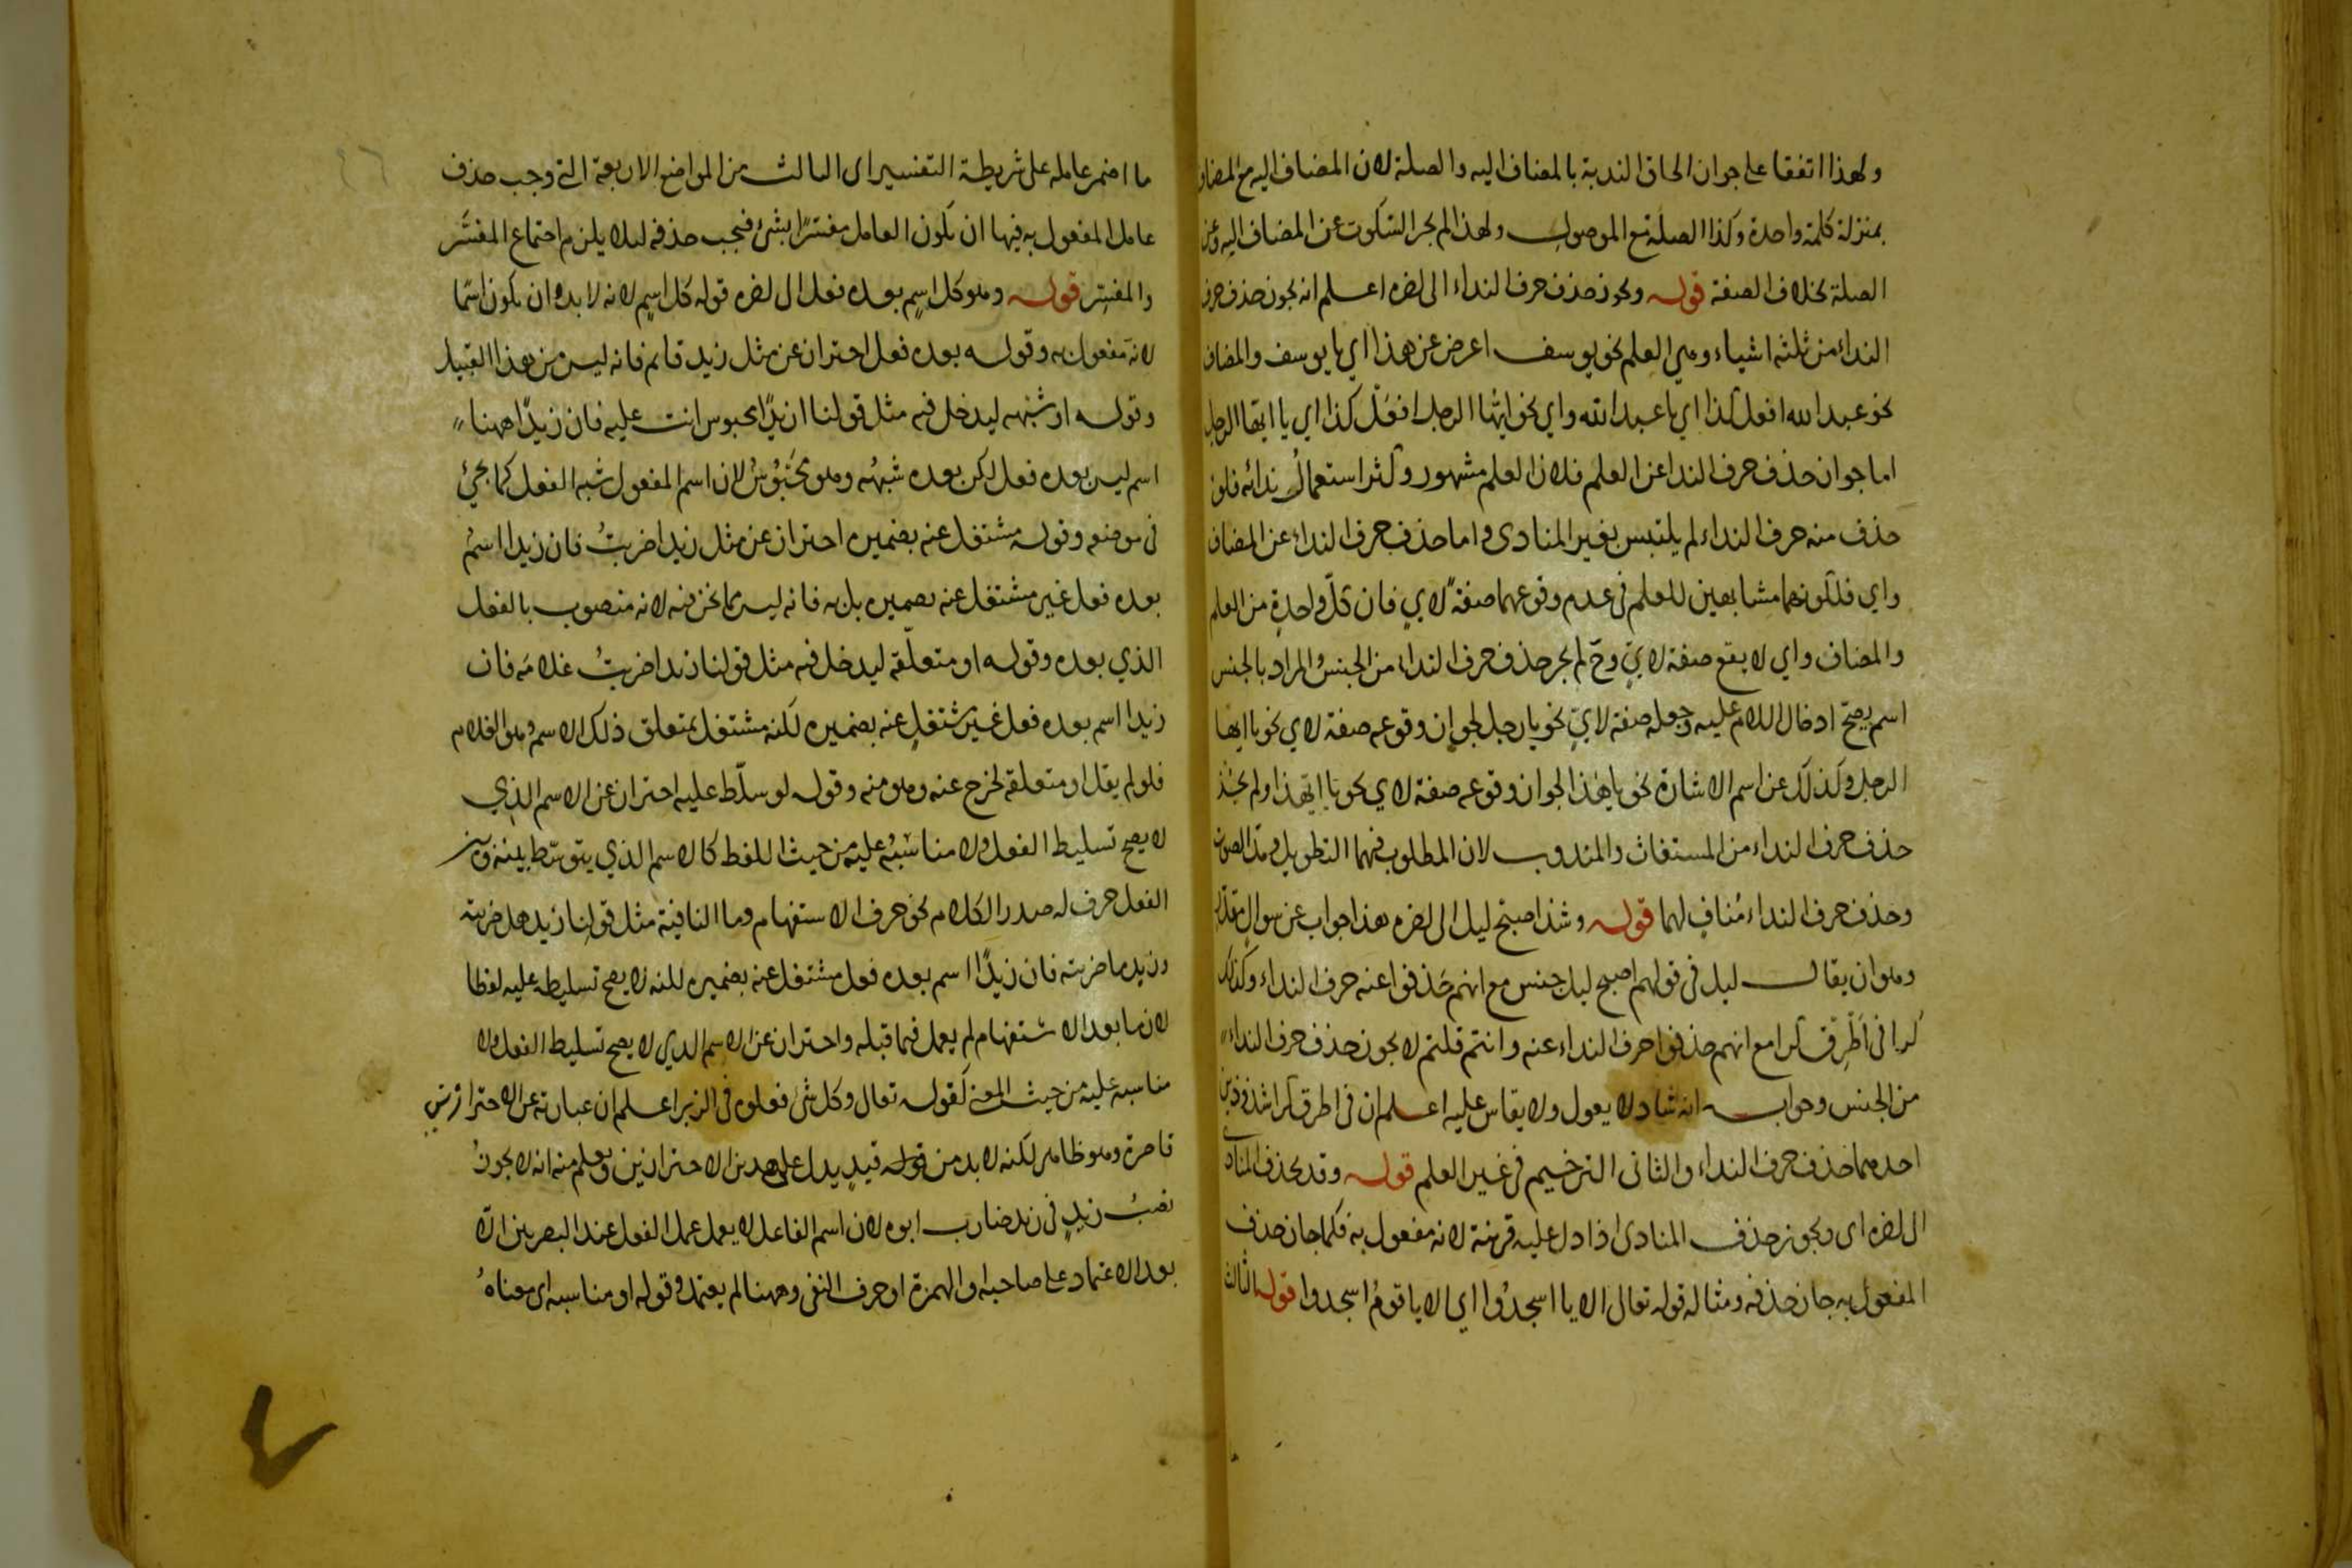 ولهذا اتفقا على جواز الحاق الندبة بالمضاف اليه والصلة لان المضاف اليه مع المضاف
بمنزلة كلمة واحدة وكذا الصلة مع الموصول ولهذا لم يجز السكوت عن المضاف اليه وعن
الصلة بخلاف الصفة قوله ويجوز حذف حرف النداء الى اخره اعلم انه يجوز حذف حرف
النداء من ثلثة اشياء وهي العلم نحو يوسف اعرض عن هذا اي يا يوسف والمضاف
نحو عبد الله افعل كذا اي يا عبد الله واي نحو ايها الرجل افعل كذا اي يا ايها الرجل
اما جواز حذف حرف الندا عن العلم فلان العلم مشهور وكثر استعمال ندائه فلو
حذف منه حرف النداء لم يلتبس بغير المنادى واما حذف حرف النداء عن المضاف
واي فلكونهما مشابهين للعلم في عدم وقوعهما صفة لاي فان كل واحدة من العلم
والمضاف واي لا يقع صفة لاي وح لم يجز حذف حرف النداء من الجنس والمراد بالجنس
اسم يصح ادخال اللام عليه وجعله صفة لاي نحو يا رجل لجواز وقوعه صفة لاي نحو يا ايها
الرجل وكذلك عن اسم الاشارة نحو يا هذا لجواز وقوعه صفة لاي نحو يا ايهذا ولم يجز
حذف حرف النداء من المستغاث والمندوب لان المطلوب فيهما التطويل ومد الصوت
وحذف حرف النداء مناف لهما قوله وشذ اصبح ليل الى اخره هذا جواب عن سوال مقدر
وهو ان يقال ليل في قولهم اصبح ليل جنس مع انهم حذفوا عنه حرف النداء وكذلك
كرا في اطرق كرا مع انهم حذفوا حرف النداء عنه وانتم قلتم لا يجوز حذف حرف النداء
من الجنس وجوابه انه شاذ لا يعول ولا يقاس عليه اعلم ان في اطرق كرا شذوذين
احدهما حذف حرف النداء والثاني الترخيم في غير العلم قوله وقد يحذف المنادى
الى اخره اى ويجوز حذف المنادى اذا دل عليه قرينة لانه مفعول به فكما جاز حذف
المفعول به جاز حذفه ومثاله قوله تعالى الا يا اسجدوا اي الا يا قوم اسجدوا قوله الثالث
ما اضمر عامله على شريطة التفسير اى الثالث من المواضع الاربعة التي وجب حذف
عامل المفعول به فيها ان يكون العامل مفسرا بشئ فيجب حذفه لئلا يلزم اجتماع المفسَّر
والمفسِّر قوله وهو كل اسم بعده فعل الى اخره قوله كل اسم لانه لا بد وان يكون اسما
لانه مفعول به وقوله بعده فعل احتراز عن مثل زيد قائم فانه ليس من هذا القبيل
وقوله او شبهه ليدخل فيه مثل قولنا ازيدا محبوس انت عليه فان زيدا ههنا
اسم ليس بعده فعل لكن بعده شبهه وهو محبوس لان اسم المفعول شبه الفعل كما يجئ
في موضعه وقوله مشتغل عنه بضميره احتراز عن مثل زيدا ضربت فان زيدا اسم
بعده فعل غير مشتغل عنه بضميره بل به فانه ليس مما نحن فيه لانه منصوب بالفعل
الذي بعده وقوله او متعلقه ليدخل فيه مثل قولنا زيدا ضربت غلامه فان
زيدا اسم بعده فعل غير مشتغل عنه بضميره لكنه مشتغل بمتعلق ذلك الاسم وهو الغلام
فلو لم يقل او متعلقه لخرج عنه وهو منه وقوله لو سلط عليه احتراز عن الاسم الذي
لا يصح تسليط الفعل ولا مناسبه عليه من حيث اللفظ كالاسم الذي يتوسط بينه وبين
الفعل حرف له صدر الكلام نحو حرف الاستفهام وما النافية مثل قولنا زيد هل ضربته
وزيد ما ضربته فان زيدا اسم بعده فعل مشتغل عنه بضميره لكنه لا يصح تسليطه عليه لفظا
لان ما بعد الاستفهام لم يعمل فيما قبله واحتراز عن الاسم الذي لا يصح تسليط الفعل ولا
مناسبه عليه من حيث المعنى كقوله تعالى وكل شئ فعلوه في الزبر اعلم ان عبارته عن الاحترازين
قاصرة وهو ظاهر لكنه لا بد من قوله قيد يدل على هذين الاحترازين ويعلم منه انه لا يجوز
نصب زيد في زيد ضارب ابوه لان اسم الفاعل لا يعمل عمل الفعل عند البصريين الا
بعد الاعتماد على صاحبه او الهمزة او حرف النفي وههنا لم يعتمد وقوله او مناسبه اى معناه